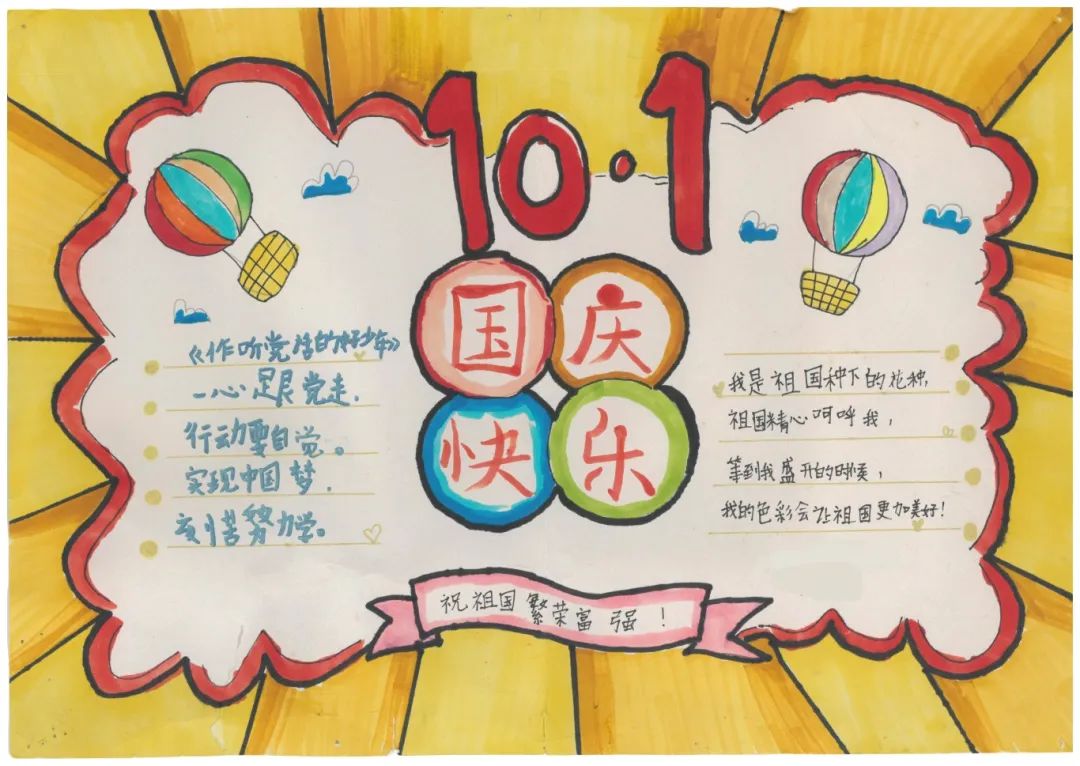 10·1
国庆
快乐
《作听党话的好少年》
一心跟党走.
行动要自觉。
实现中国梦.
刻苦努力学。
我是祖国种下的花种,
祖国精心呵呼我,
等到我盛开的时候,
我的色彩会让祖国更加美好!
祝祖国繁荣富强!